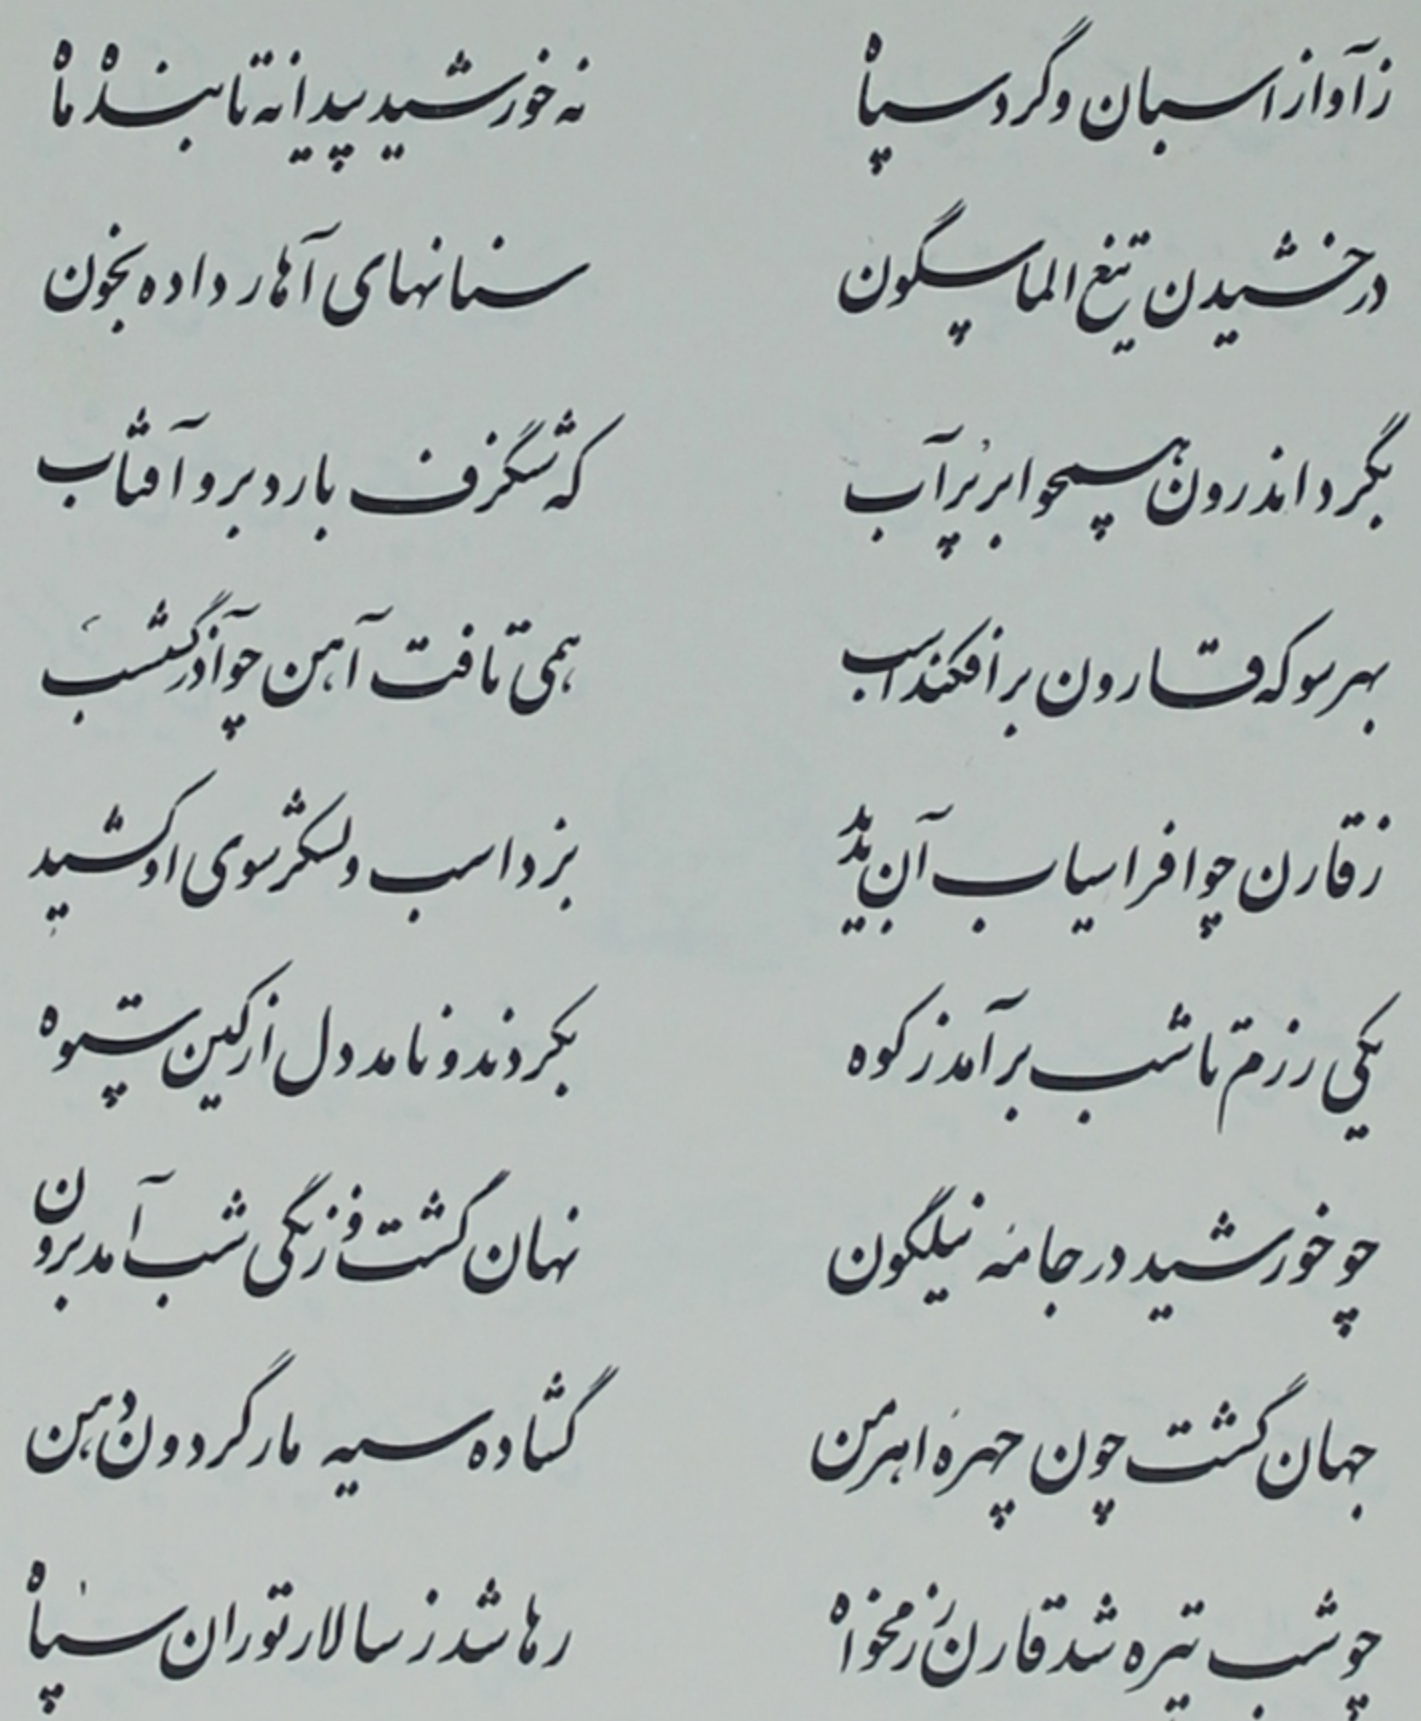 ز آواز اسبان و گرد سپاه نه خورشید پیدا نه تابنده ماه
درخشیدن تیغ الماسگون سنانهای آهار داده بخون
بگرد اندرون همچو ابر پر آب که شنگرف بارد برو آفتاب
بهر سو که قارون بر افکند اسب همی تافت آهن چو آذرگشسب
ز قارن چو افراسیاب آن بدید بزد اسب و لشکر سوی او کشید
یکی رزم تا شب برآمد ز کوه بکردند و نامد دل از کین ستوه
چو خورشید در جامهٔ نیلگون نهان گشت و زنگی شب آمد برون
جهان گشت چون چهرهٔ اهرمن گشاده سیه مار گردون دهن
چو شب تیره شد قارن رزمخواه رها شد ز سالار توران سپاه